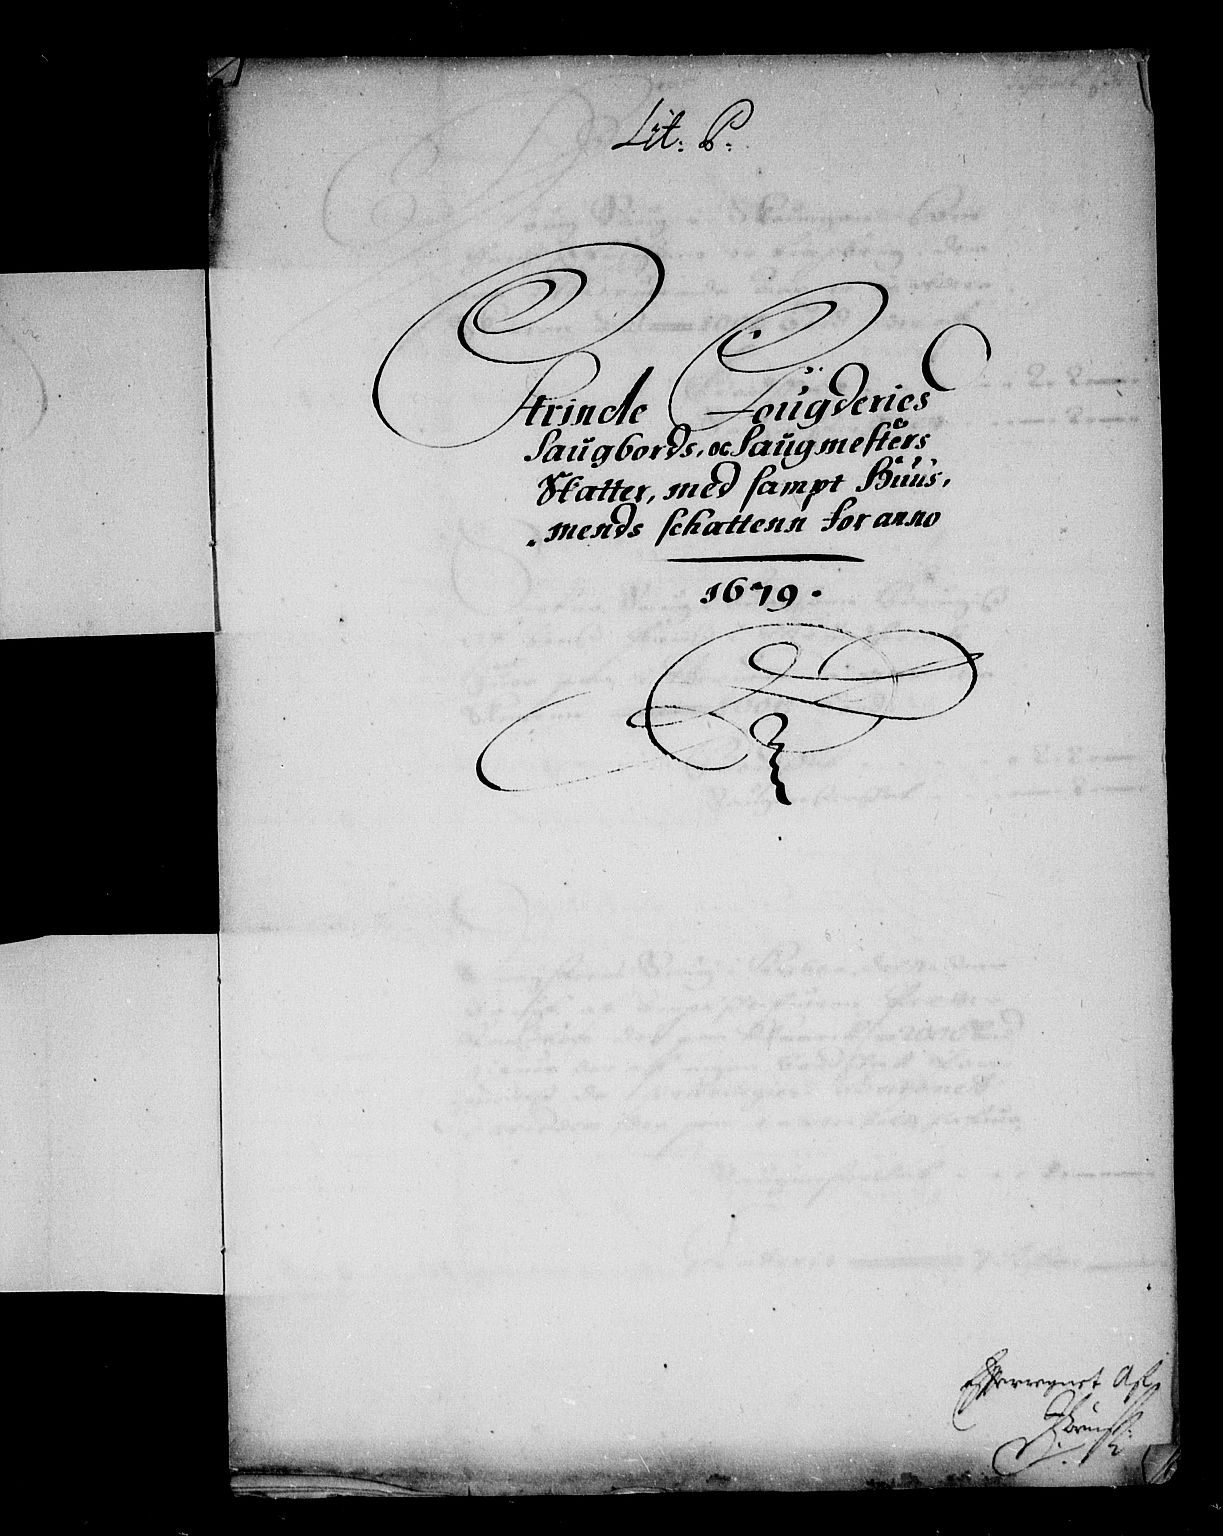 Lit: B:
Strinde Foügderies
Saügbords, oc Saügmesters
Skatter, med sampt Huüs,
mends schattenn for anno
1679.
Efferregnet Af